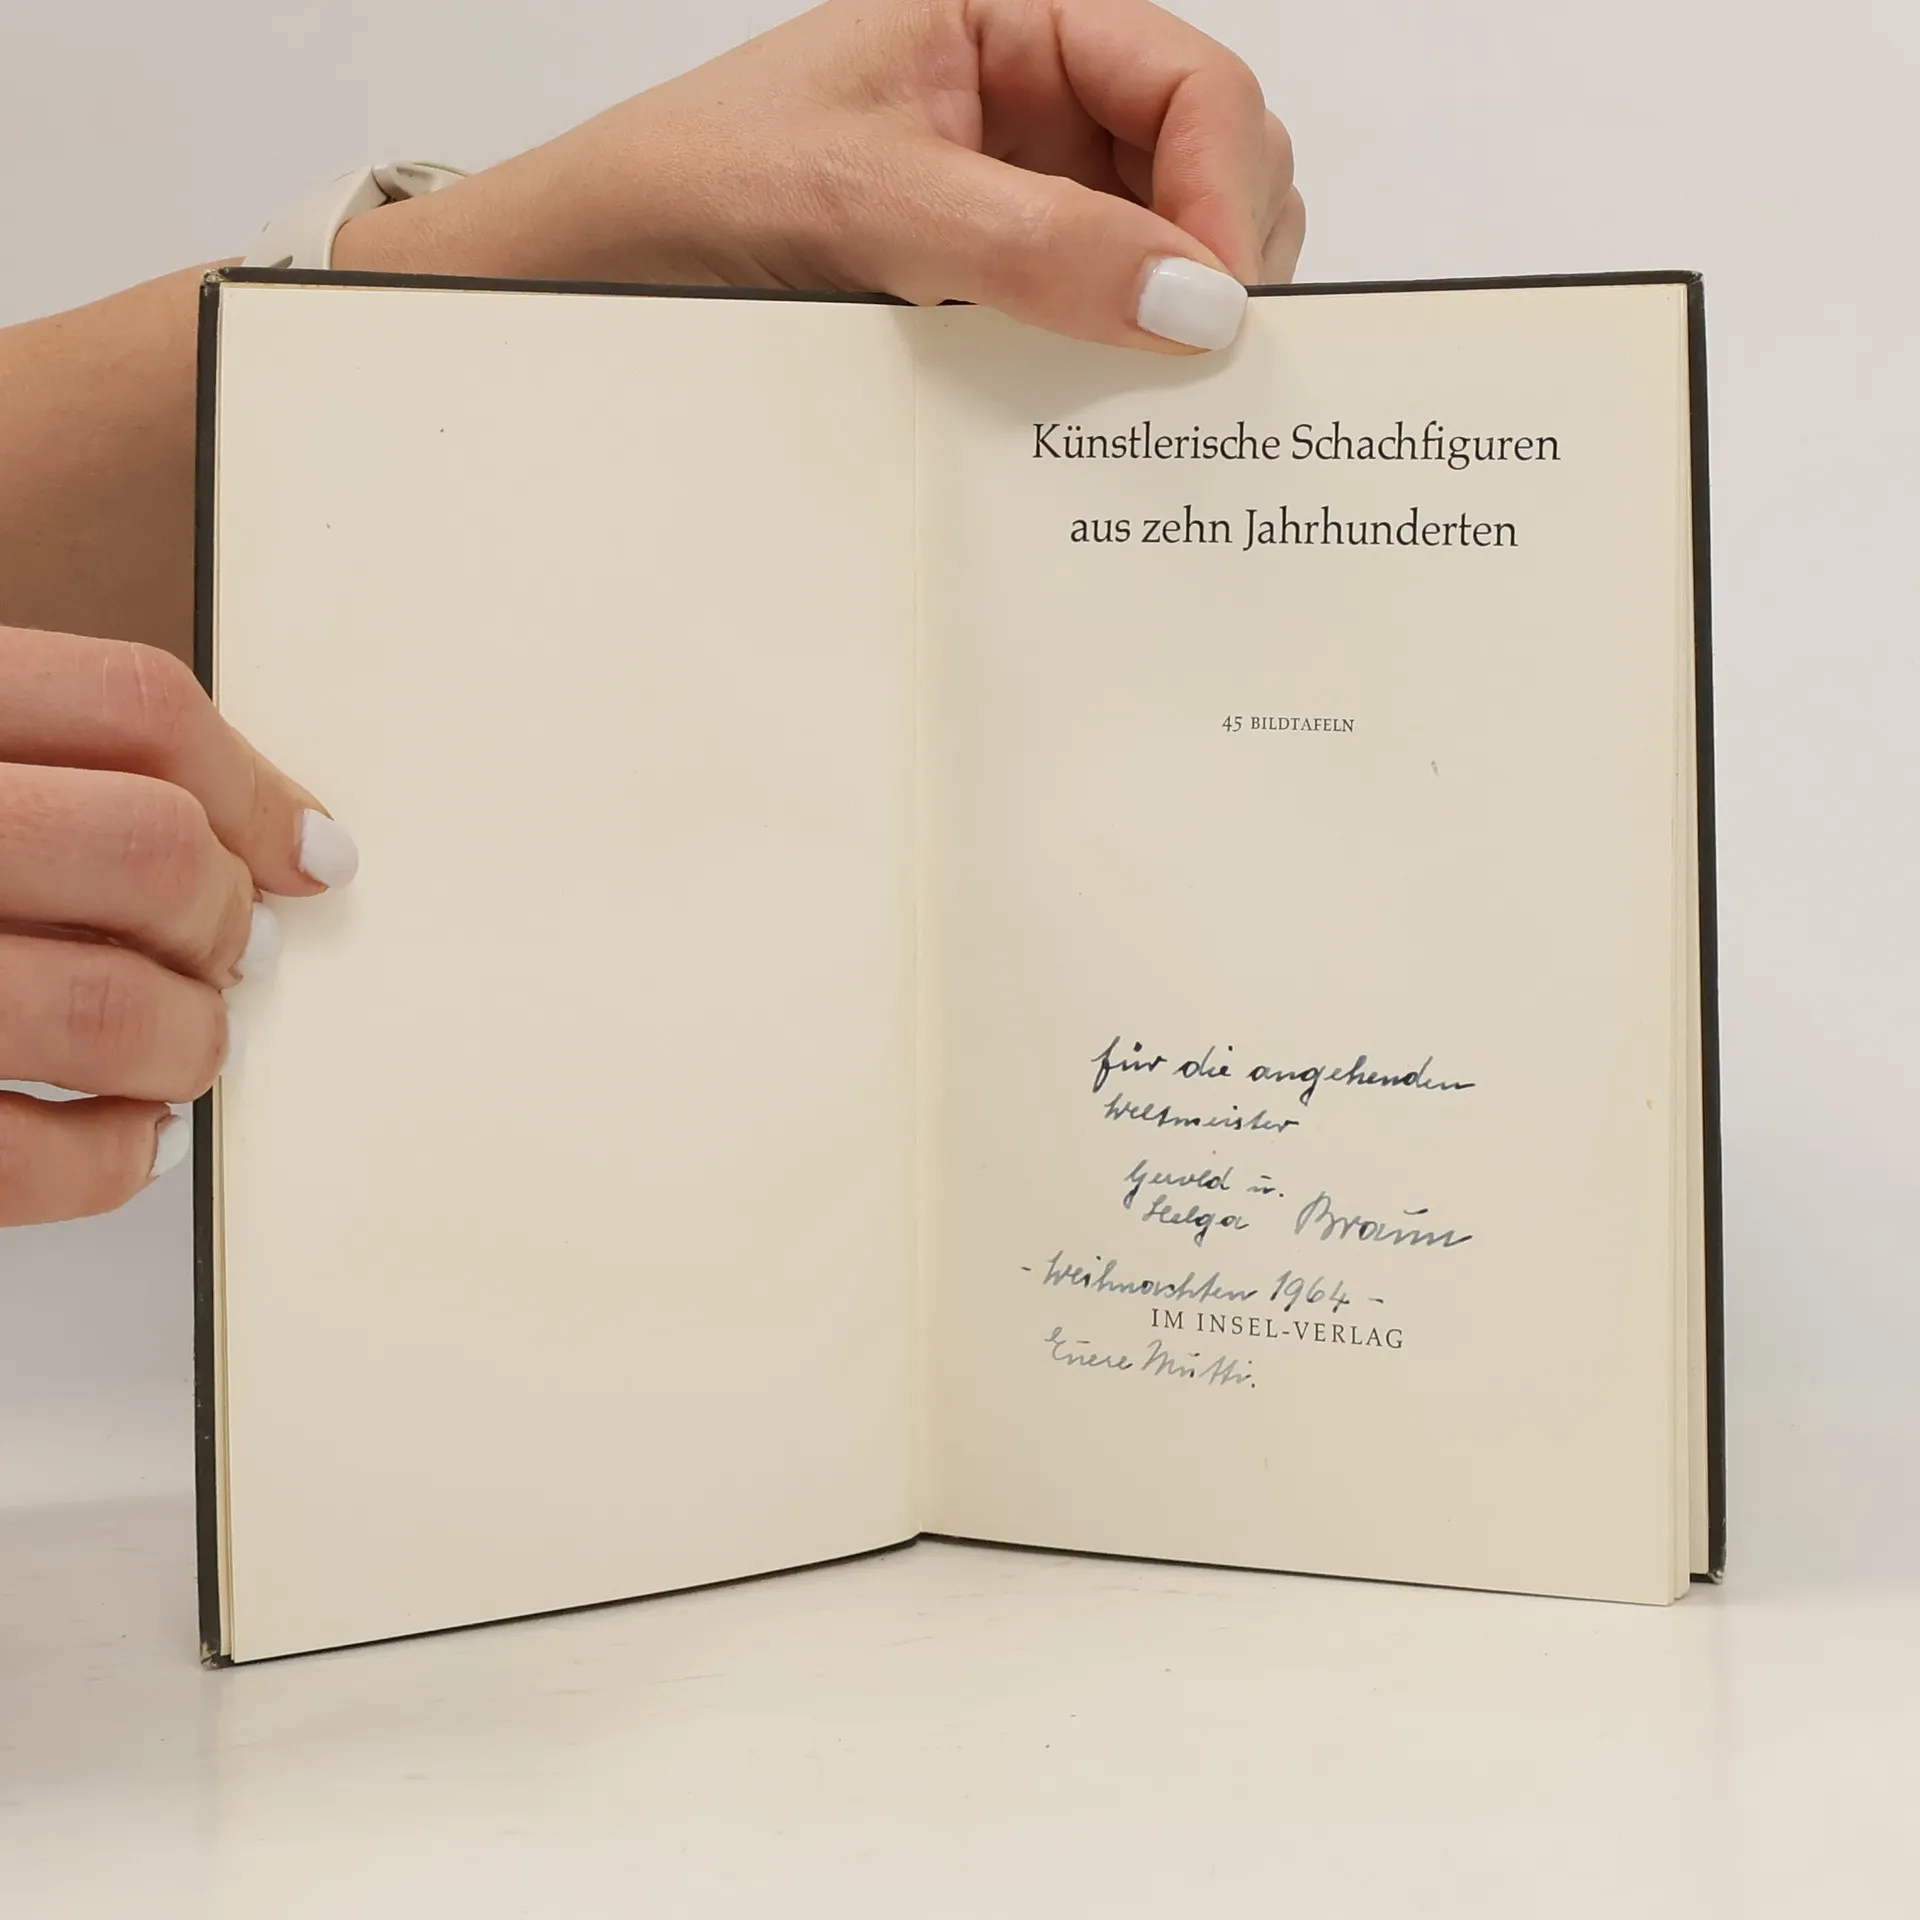 Künstlerische Schachfiguren
aus zehn Jahrhunderten
45 BILDTAFELN
für die angehenden
Weltmeister
Gerold u.
Helga Braun
- Weihnachten 1964 -
IM INSEL-VERLAG
Euere Mutti.